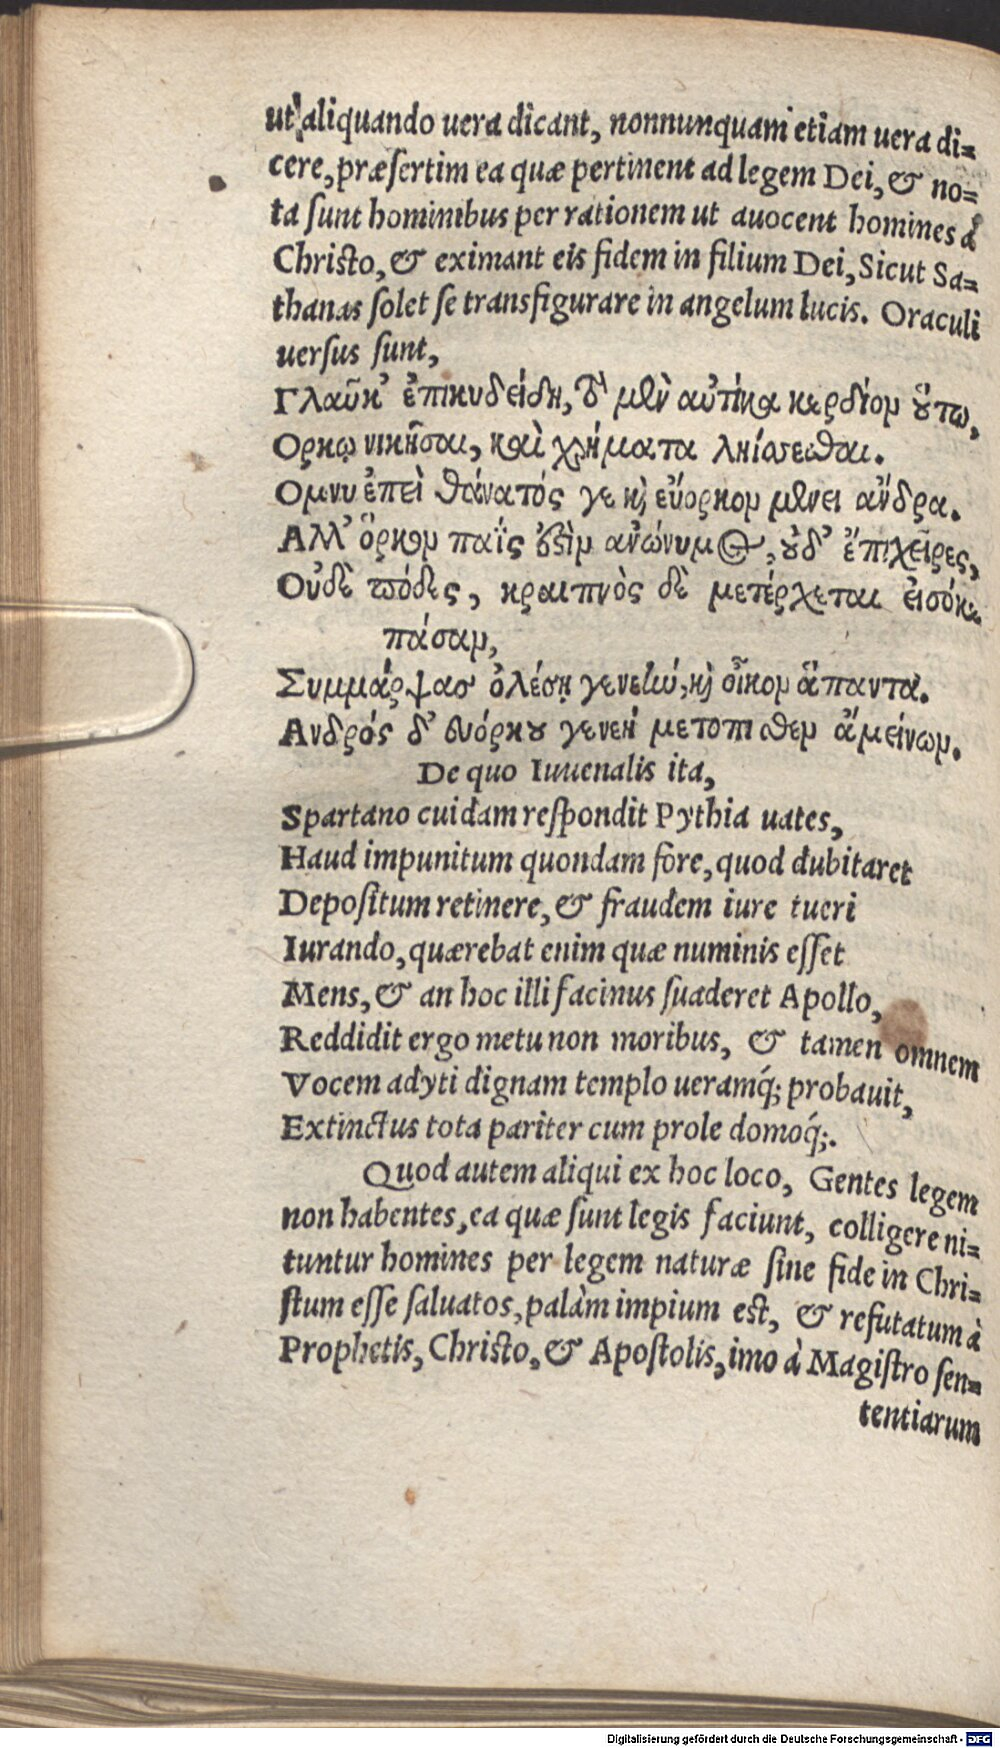 ut aliquando uera dicant, nonnunquam etiam uera di=
cere, præsertim ea quæ pertinent ad legem Dei, & no=
ta sunt hominibus per rationem ut auocent homines à
Christo, & eximant eis fidem in filium Dei, Sicut Sa=
thanas solet se transfigurare in angelum lucis. Oraculi
uersus sunt,
Γλαῦκ᾽ ἐπικυδείδη, τὸ μὲν αὐτίκα κερδίον οὕτω,
Ορκῳ νικῆσαι, καὶ χρήματα ληίσεσθαι.
Ομνυ ἐπεὶ θάνατός γε καὶ εὔορκον μένει ἄνδρα.
Αλλ᾽ ὅρκου παῖς ἐστὶν ἀνώνυμος, οὐδ᾽ ἔπι χεῖρες,
Οὐδὲ πόδες, κραιπνὸς δὲ μετέρχεται εἰσόκε
πάσαν,
Συμμάρψας ὀλέσῃ γενεὴν, καὶ οἶκον ἅπαντα.
Ανδρός δ᾽ ευόρκου γενεὴ μετοπισθεν ἀμείνων.
De quo Iuuenalis ita,
Spartano cuidam respondit Pythia uates,
Haud impunitum quondam fore, quod dubitaret
Depositum retinere, & fraudem iure tueri
Iurando, quærebat enim quæ numinis esset
Mens, & an hoc illi facinus suaderet Apollo,
Reddidit ergo metu non moribus, & tamen omnem
Vocem adyti dignam templo ueramq́; probauit,
Extinctus tota pariter cum prole domoq́;.
Quod autem aliqui ex hoc loco, Gentes legem
non habentes, ea quæ sunt legis faciunt, colligere ni=
tuntur homines per legem naturæ sine fide in Chri=
stum esse saluatos, palàm impium est, & refutatum à
Prophetis, Christo, & Apostolis, imo à Magistro sen=
tentiarum
Digitalisierung gefördert durch die Deutsche Forschungsgemeinschaft - DFG